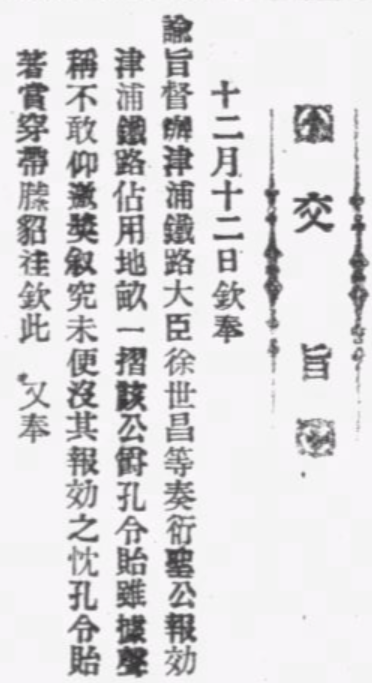 交旨
十二月十二日欽奉
諭旨督辦津浦鐵路大臣徐世昌等奏衍聖公報効
津浦鐵路佔用地畝一摺該公爵孔令貽雖據聲
稱不敢仰邀奬叙究未便沒其報効之忱孔令貽
著賞穿帶膆貂褂欽此 又奉